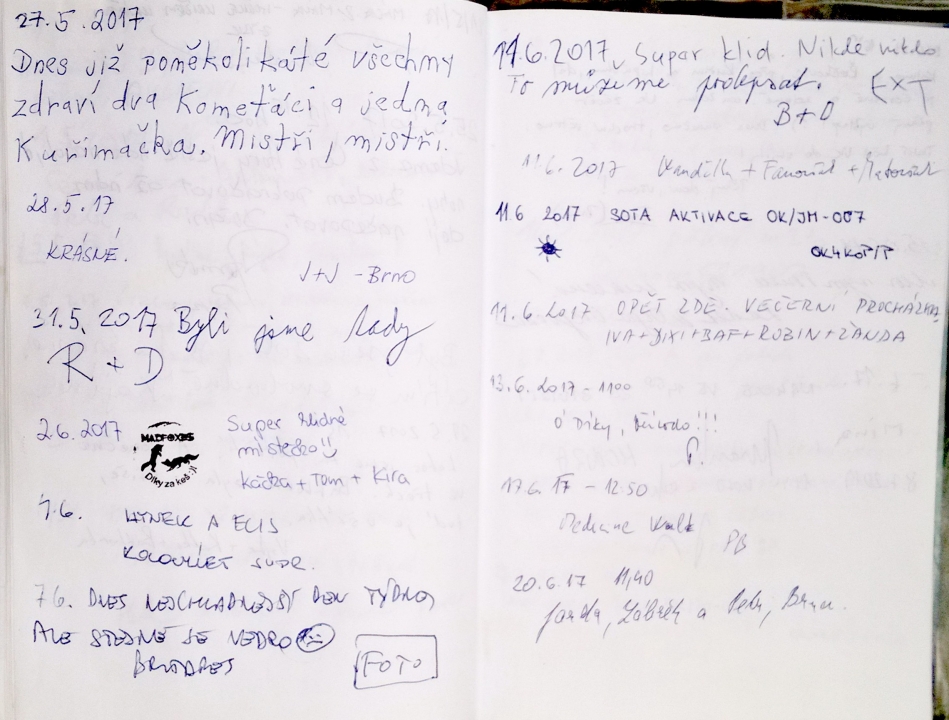 27.5.2017
Dnes již poněkolikáté všechny
zdraví dva Kometáci a jedna
Kuřimačka. Mistři, mistři.
28.5.17
KRÁSNÉ.
J+J - Brno
31.5. 2017 Byli jsme tady
R + D
2.6.2017
MADFOXES
Díky za keš :)
Super klidné
místečko
Káčka + Tom + Kira
4.6.
HYNEK A ELIS
SUPR.
7.6. DNES NEJCHLADNĚJŠÍ DEN TÝDNE,
ALE STEJNĚ JE VEDRO
FOTO
11.6.2017, Super klid. Nikde nikdo
To můžeme
EXT
B+D
11.6.2017
11.6 2017 SOTA AKTIVACE OK/JM-007
OK4KOP/P
11.6.2017 OPĚT ZDE. VEČERNÍ PROCHÁZKA.
IVA+DIXI+BAF+RUBIN+ZANDA
13.6.2017 - 1100
Ó díky, Přírodo!!!
P.
17.6.17 - 12.50
PB
20.6.17 11,40
Jarda, a Petr, Brno.